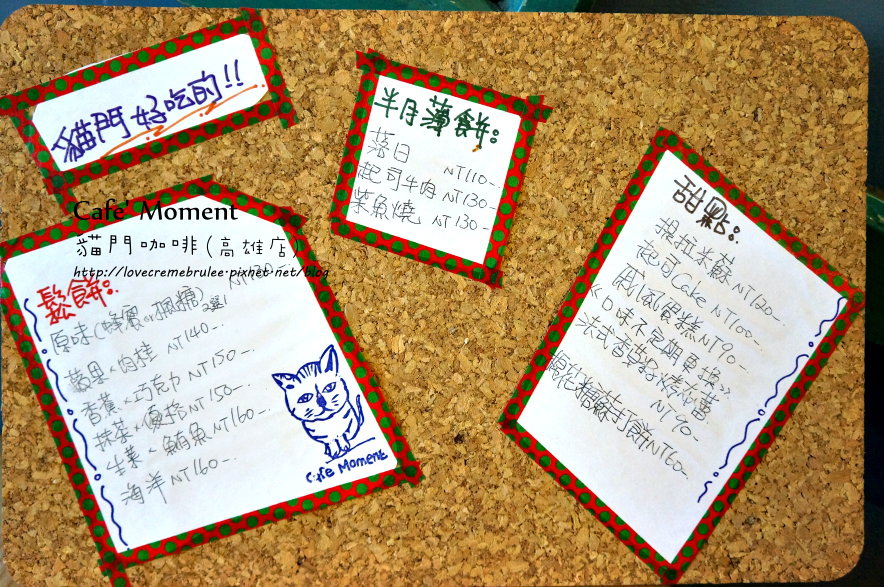 貓門好吃的!!
半月薄餅:
落日 NT110-.
起司牛肉 NT130-.
菜魚燒 NT130-.
Cafe' Moment
貓門咖啡(高雄店)
http://lovecremebrulee.pixnet.net/blog
鬆餅:
原味(蜂蜜or楓糖) 2選1
蘋果×肉桂 NT140-.
香蕉×巧克力 NT150-.
抹茶× NT150-.
生菜×鮪魚 NT160-.
海洋 NT160-.
Cafe Moment
甜點:
提拉米蘇 NT120-.
起司Cake NT100-.
戚風蛋糕 NT90-.
《口味不定期更換》
法式香草籽烤布蕾 NT90-.
蘇打餅 NT60-.